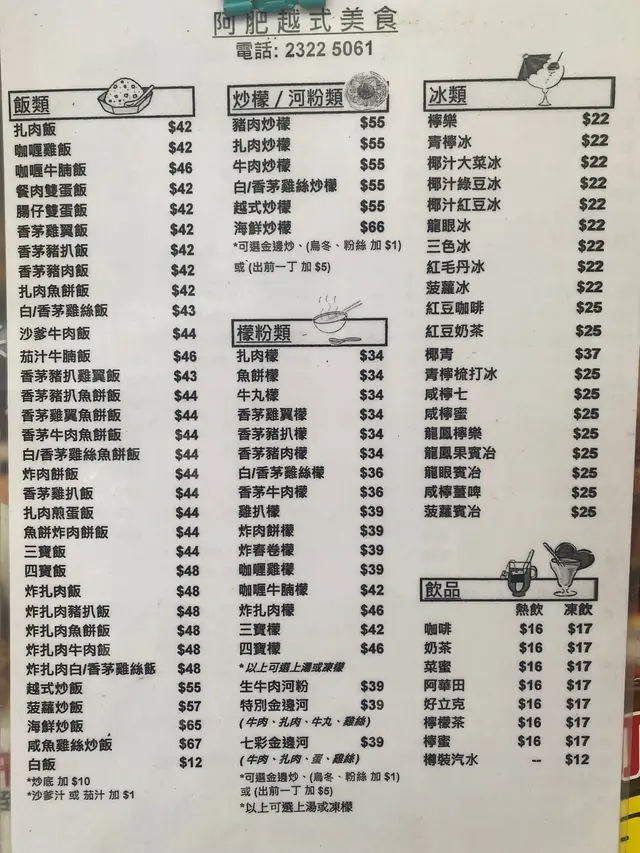 阿肥越式美食
電話: 2322 5061
飯類
扎肉飯 $42
咖喱雞飯 $42
咖喱牛腩飯 $46
餐肉雙蛋飯 $42
腸仔雙蛋飯 $42
香茅雞翼飯 $42
香茅豬扒飯 $42
香茅豬肉飯 $42
扎肉魚餅飯 $42
白/香茅雞絲飯 $43
沙爹牛肉飯 $44
茄汁牛腩飯 $46
香茅豬扒雞翼飯 $43
香茅豬扒魚餅飯 $44
香茅雞翼魚餅飯 $44
香茅牛肉魚餅飯 $44
白/香茅雞絲魚餅飯 $44
炸肉餅飯 $44
香茅雞扒飯 $44
扎肉煎蛋飯 $44
魚餅炸肉餅飯 $44
三寶飯 $44
四寶飯 $48
炸扎肉飯 $48
炸扎肉豬扒飯 $48
炸扎肉魚餅飯 $48
炸扎肉牛肉飯 $48
炸扎肉白/香茅雞絲飯 $48
越式炒飯 $55
菠蘿炒飯 $57
海鮮炒飯 $65
咸魚雞絲炒飯 $67
白飯 $12
*炒底 加 $10
*沙爹汁 或 茄汁 加 $1
炒檬 / 河粉類
豬肉炒檬 $55
扎肉炒檬 $55
牛肉炒檬 $55
白/香茅雞絲炒檬 $55
越式炒檬 $55
海鮮炒檬 $66
*可選金邊炒、(烏冬、粉絲 加 $1)
或 (出前一丁 加 $5)
檬粉類
扎肉檬 $34
魚餅檬 $34
牛丸檬 $34
香茅雞翼檬 $34
香茅豬扒檬 $34
香茅豬肉檬 $34
白/香茅雞絲檬 $36
香茅牛肉檬 $36
雞扒檬 $39
炸肉餅檬 $39
炸春卷檬 $39
咖喱雞檬 $39
咖喱牛腩檬 $42
炸扎肉檬 $46
三寶檬 $42
四寶檬 $46
*以上可選上湯或凍檬
生牛肉河粉 $39
特別金邊河 $39
(牛肉、扎肉、牛丸、雞絲)
七彩金邊河 $39
(牛肉、扎肉、蛋、雞絲)
*可選金邊炒、(烏冬、粉絲 加 $1)
或 (出前一丁 加 $5)
*以上可選上湯或凍檬
冰類
檸樂 $22
青檸冰 $22
椰汁大菜冰 $22
椰汁綠豆冰 $22
椰汁紅豆冰 $22
龍眼冰 $22
三色冰 $22
紅毛丹冰 $22
菠蘿冰 $22
紅豆咖啡 $25
紅豆奶茶 $25
椰青 $37
青檸梳打冰 $25
咸檸七 $25
咸檸蜜 $25
龍鳳檸樂 $25
龍鳳果賓冶 $25
龍眼賓冶 $25
咸檸薑啤 $25
菠蘿賓冶 $25
飲品
熱飲 凍飲
咖啡 $16 $17
奶茶 $16 $17
菜蜜 $16 $17
阿華田 $16 $17
好立克 $16 $17
檸檬茶 $16 $17
檸蜜 $16 $17
樽裝汽水 -- $12